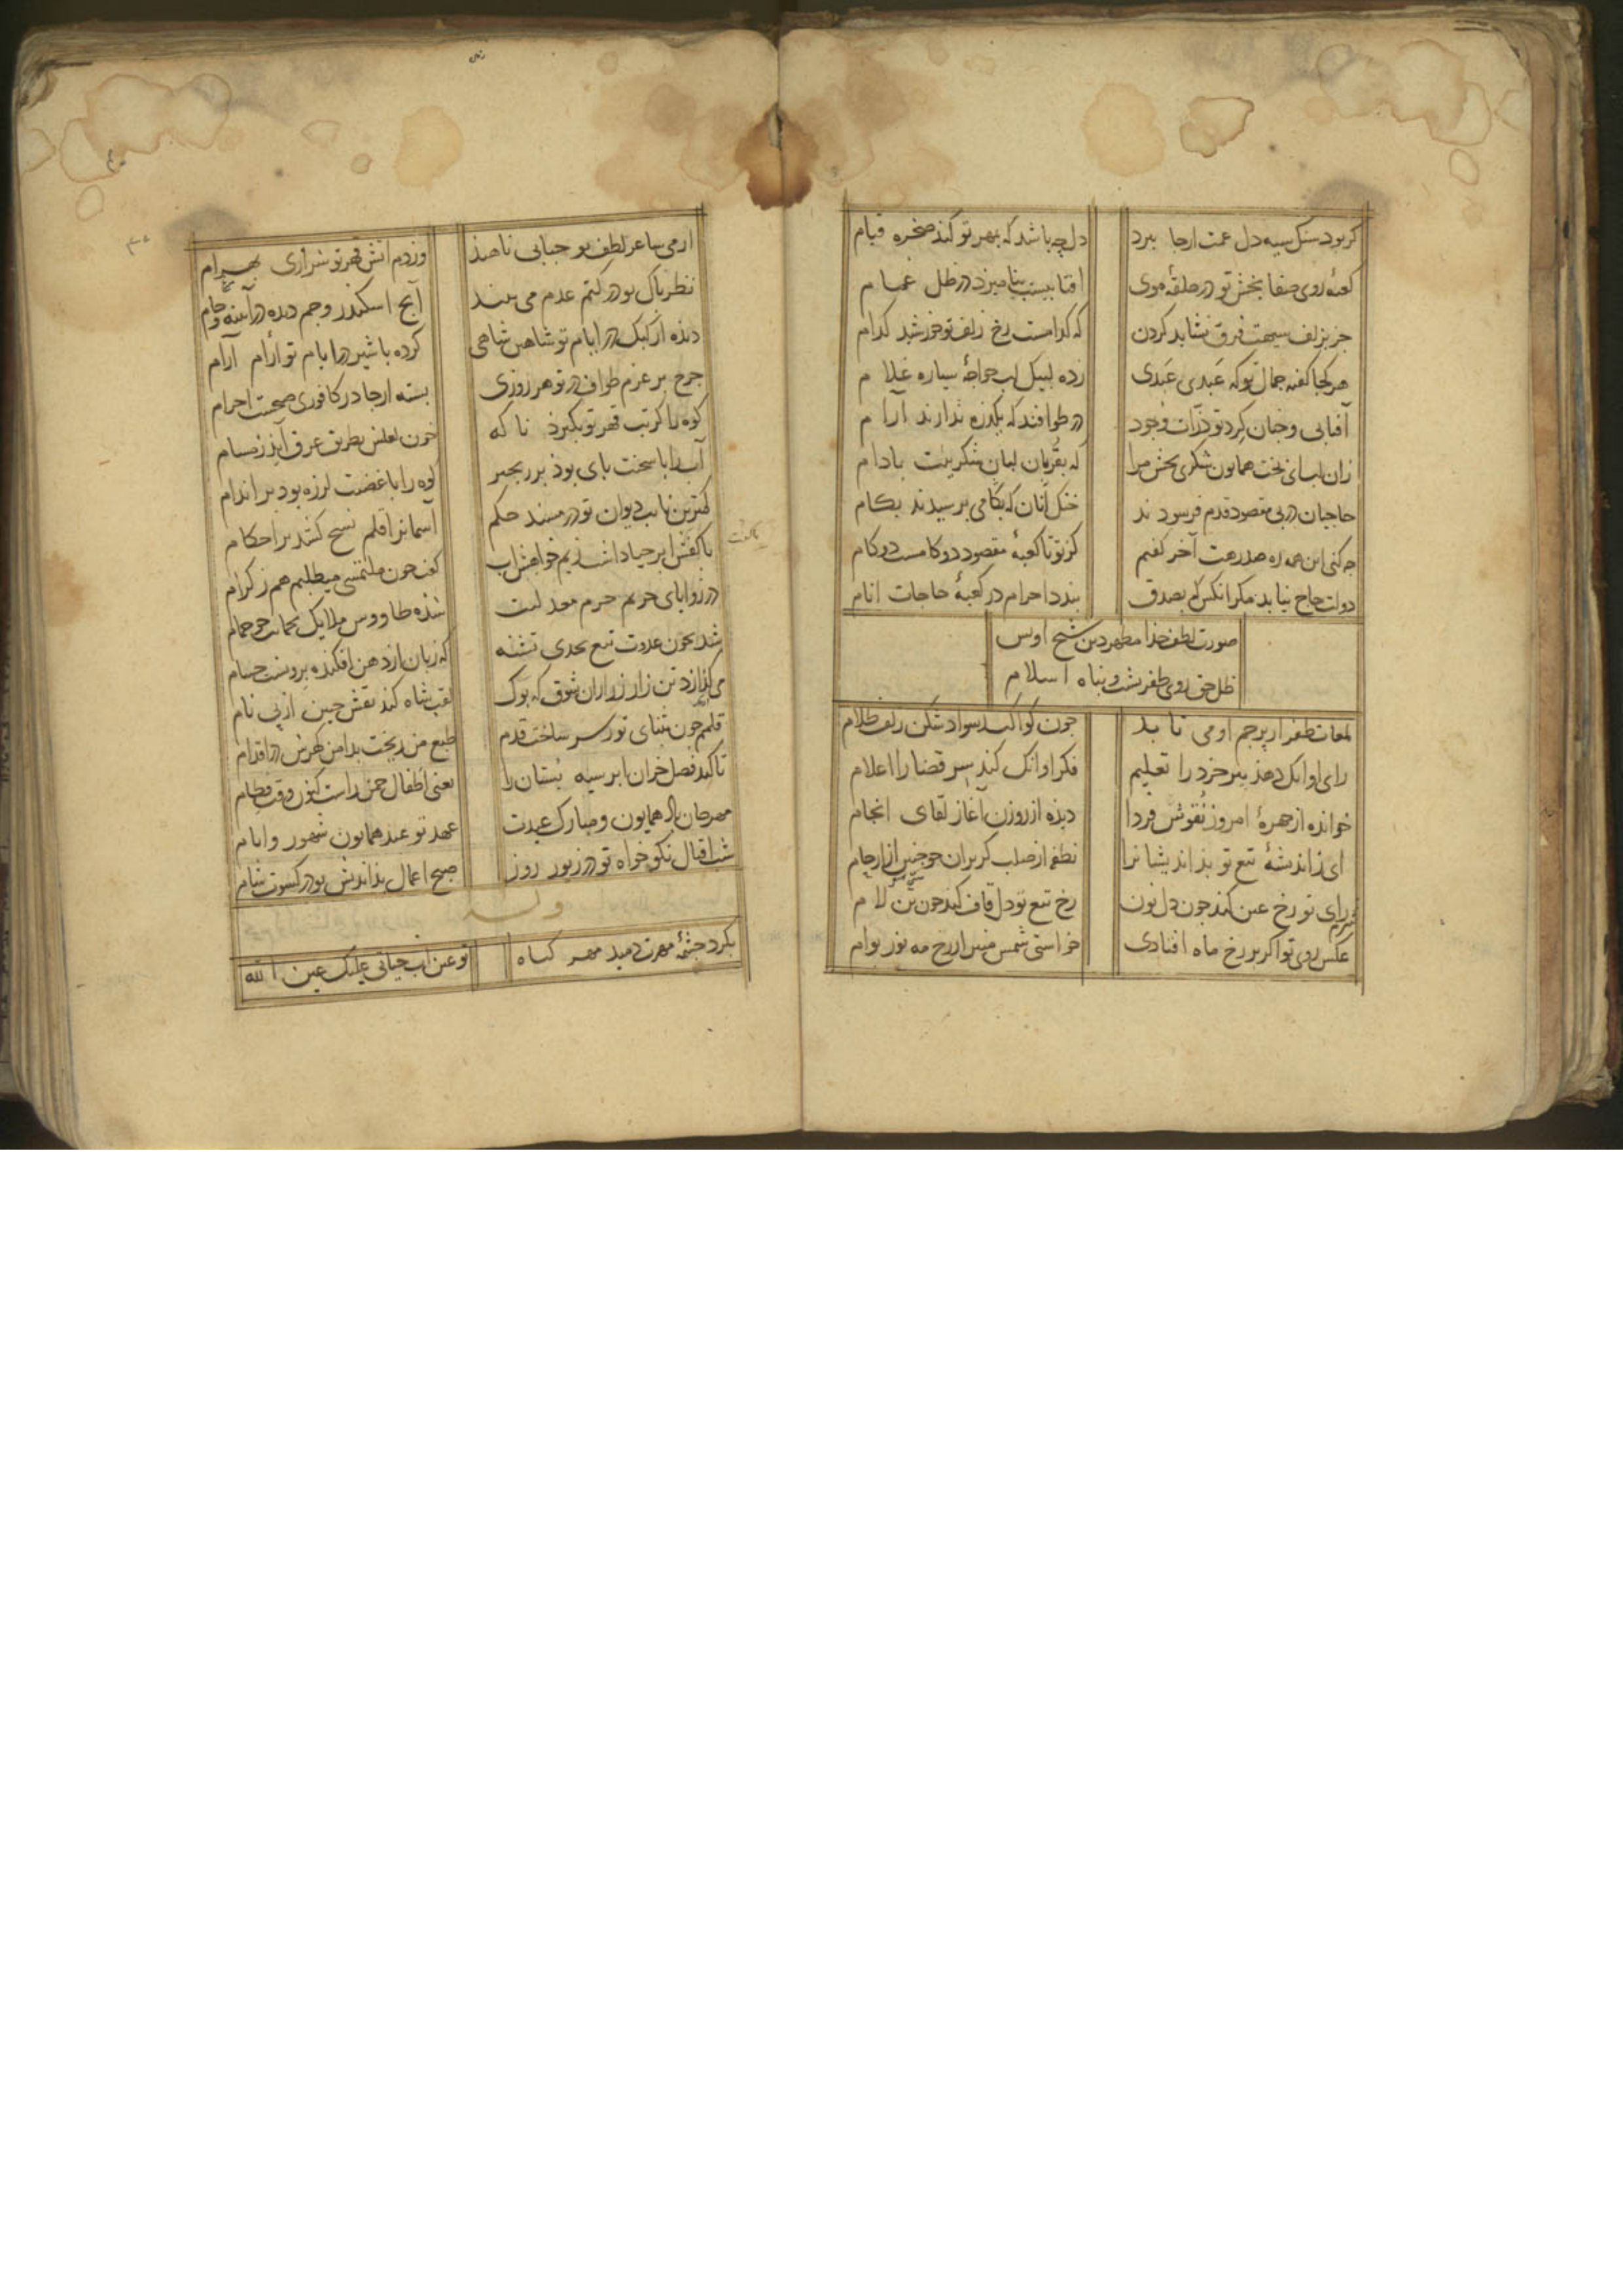 کر بود سنک سیه دل غمت ازجا ببرد
دل چه باشد که بمهر تو کند صخره قیام
کعبهٔ روی صفا بخش تو در حلقهٔ موی
افتابیست بنامیزد در ظل غمام
جز بزلف سیهت فرق نشاید کردن
که کدامست رخ زلف تو خورشید کدام
هر کجا کفته جمال تو که عبدی عبدی
زده لبیک لب خواجهٔ سیاره غلام
آفتابی و جنان کرد تو ذرات وجود
در طوافند که یکذره ندارند آرام
زان لب ای بخت همایون شکری بخش مرا
که بقربان لبان شکرینت بادام
حاجیان در پی مقصود قدم فرسودند
خنک آنان که بکامی برسیدند بکام
جه کنی این همه ره صدرهت آخر کفتم
کز تو تا کعبهٔ مقصود دو کامست دو کام
دولت حاج نیابد مکر آنکس که بصدق
بندد احرام در کعبهٔ حاجات انام
صورت لطف خذا مظهر دین شیخ اویس
ظل حق روی ظفر پشت و پناه اسلام
لمعات ظفر از پرجم او می تابد
جون کواکب ز سواد شکن زلف ظلام
رای او انک دهذ پیر خرد را تعلیم
فکر او انک کند سر قضا را اعلام
خوانده از جهرهٔ امروز نقوش فردا
دیذه از روزن آغاز لقای انجام
ای ز اندیشهٔ تیغ تو بذاندیشانرا
نطفه از صلب کریزان جو جنین از ارحام
رای تو رخ عین کند جون دل نون
رخ تیغ تو دل قاف کند جون لام
عکس روی تو اکر بر رخ ماه افتادی
خواستی شمس منیر از رخ مه نور بوام
از می ساغر لطف تو حبابی ناهید
وز دم اتش قهر تو شراری بهرام
نظر پاک تو در کتم عدم می بیند
آنج اسکندر و جم دیده در آینه و جام
دیذه از کبک در ایام تو شاهین شاهی
کرده با شیر در ایام تو آرام آرام
جرخ بر عزم طواف در تو هر روزی
بسته ازجادر کافوری صبحت احرام
کوه را کر تب قهر تو بکیرد ناکه
خون لعلش بطریق عرق آید ز مسام
آب را با سخت پای بوذ بر زنجیر
کوه را با غضبت لرزه بود بر اندام
کمترین نایب دیوان تو در مسند حکم
آسمانرا قلم نسخ کشد بر احکام
با کفش ابر حیا داشت زیم خواهش آب
کفت جون ملتمسی میطلبم هم ز کرام
در زوایای حریم حرم معدلتت
شذه طاووس ملایک بحمایت جو حمام
شد بخون عدوت تیغ بحدی تشنه
که زبان از دهن افکنده برونست حسام
می کذازد تن زار زر ازان شوق که بوک
لقب شاه کند نقش جبین از پی نام
قلمم جون بثنای تو ز سر ساخت قدم
طبع من ریخت بدامن کهرش در اقدام
تا کند فصل خزان ابر سیه بستان را
یعنی اطفال جمن راست کنون وقت فطام
مهرجان همایون و مبارک عیدت
عهد تو عید همایون شهور و ایام
شب اقبال نکو خواه تو در زیور روز
صبح اعمال بذاندیش تو در کسوت شام
وله
بکرد جشمهٔ مهرت دمید مهر کیاه
تو عین آب حیاتی علیک عین الله